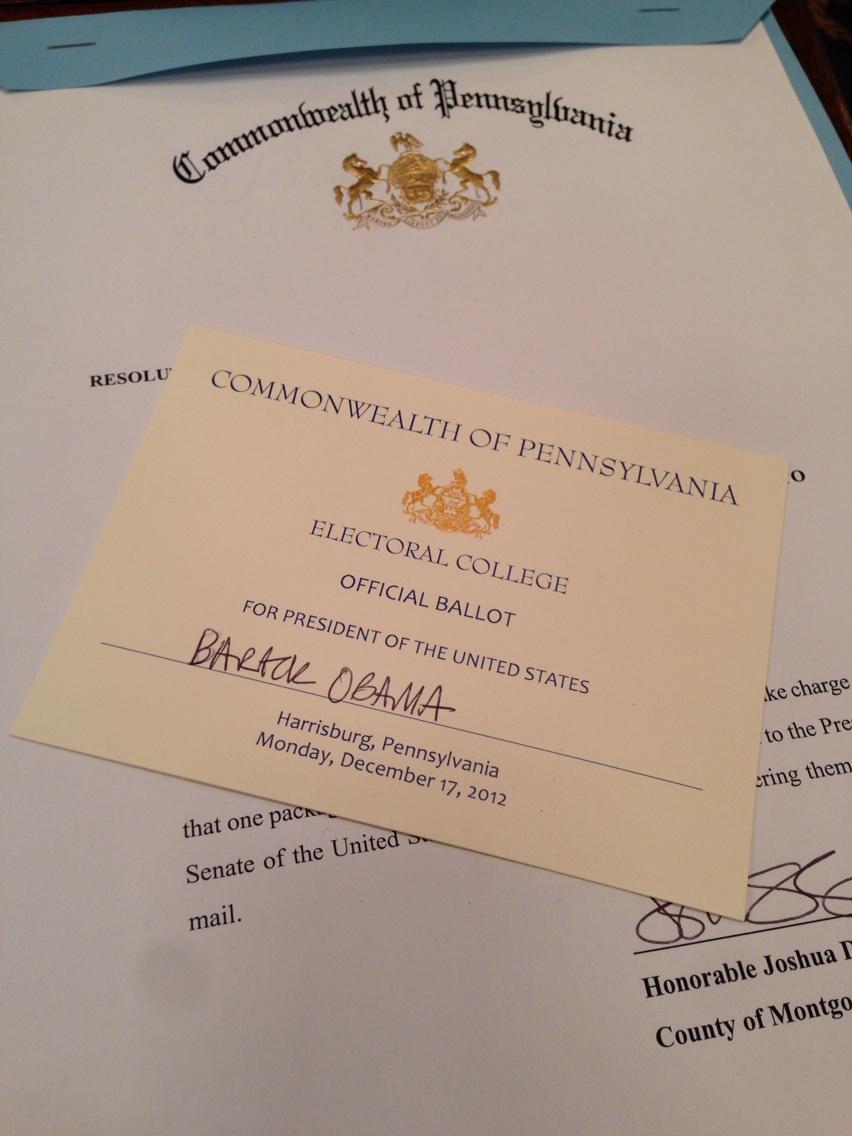 Commonwealth of Pennsylvania
RESOLU
COMMONWEALTH OF PENNSYLVANIA
ELECTORAL COLLEGE
OFFICIAL BALLOT
FOR PRESIDENT OF THE UNITED STATES
BARACK OBAMA
Harrisburg, Pennsylvania
Monday, December 17, 2012
ke charge
to the Pre
ering them
that one pack
Senate of the United S
mail.
Honorable Joshua D
County of Montgo